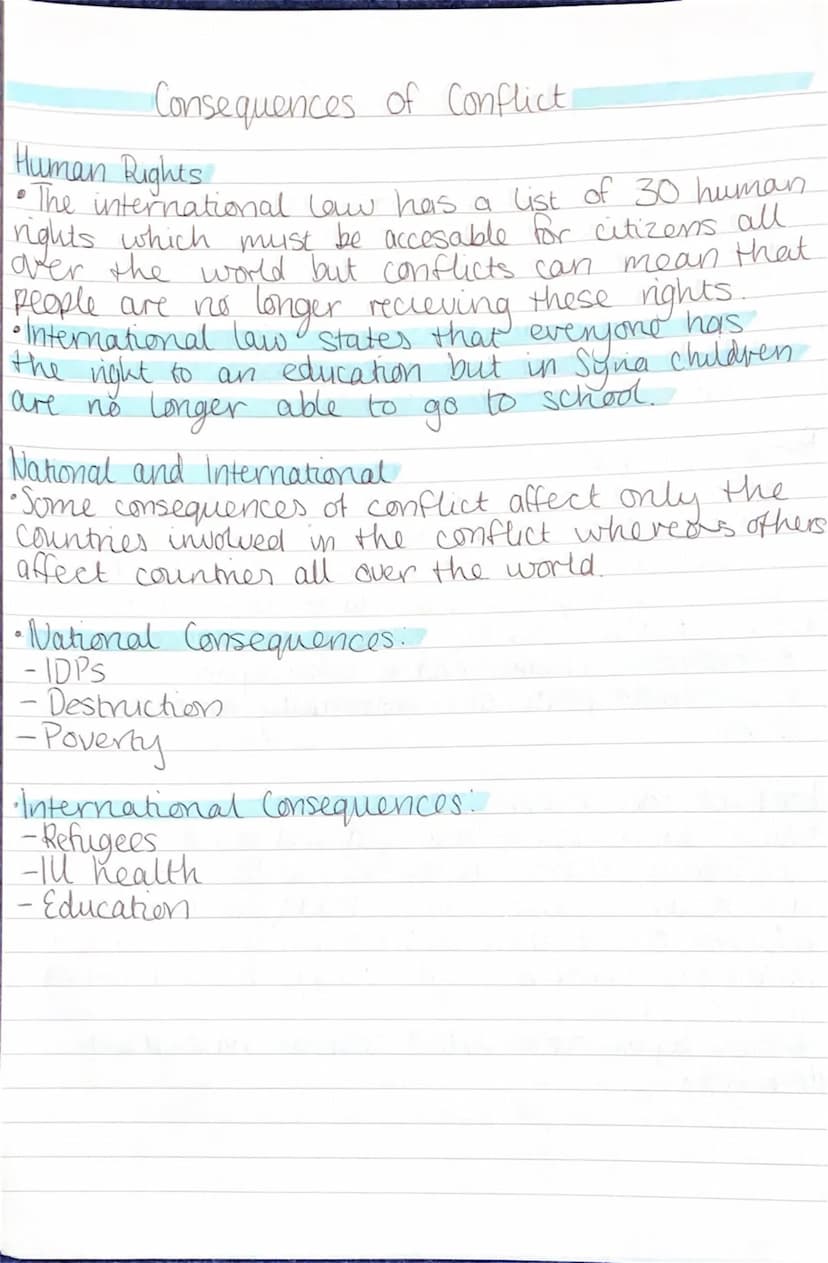 Consequences of Conflict
Human Rights
• The international law has a list of 30 human
rights which must be accesable for citizens all
over the world but conflicts can mean that
people are no longer recieving these rights.
• International law states that everyone has
the right to an education but in Syria children
are no longer able to go to school.
National and International
• Some consequences of conflict affect only the
countries involved in the conflict whereas others
affect countries all over the world.
• National Consequences:
- IDPs
- Destruction
- Poverty
• International Consequences:
- Refugees
- Ill health
- Education